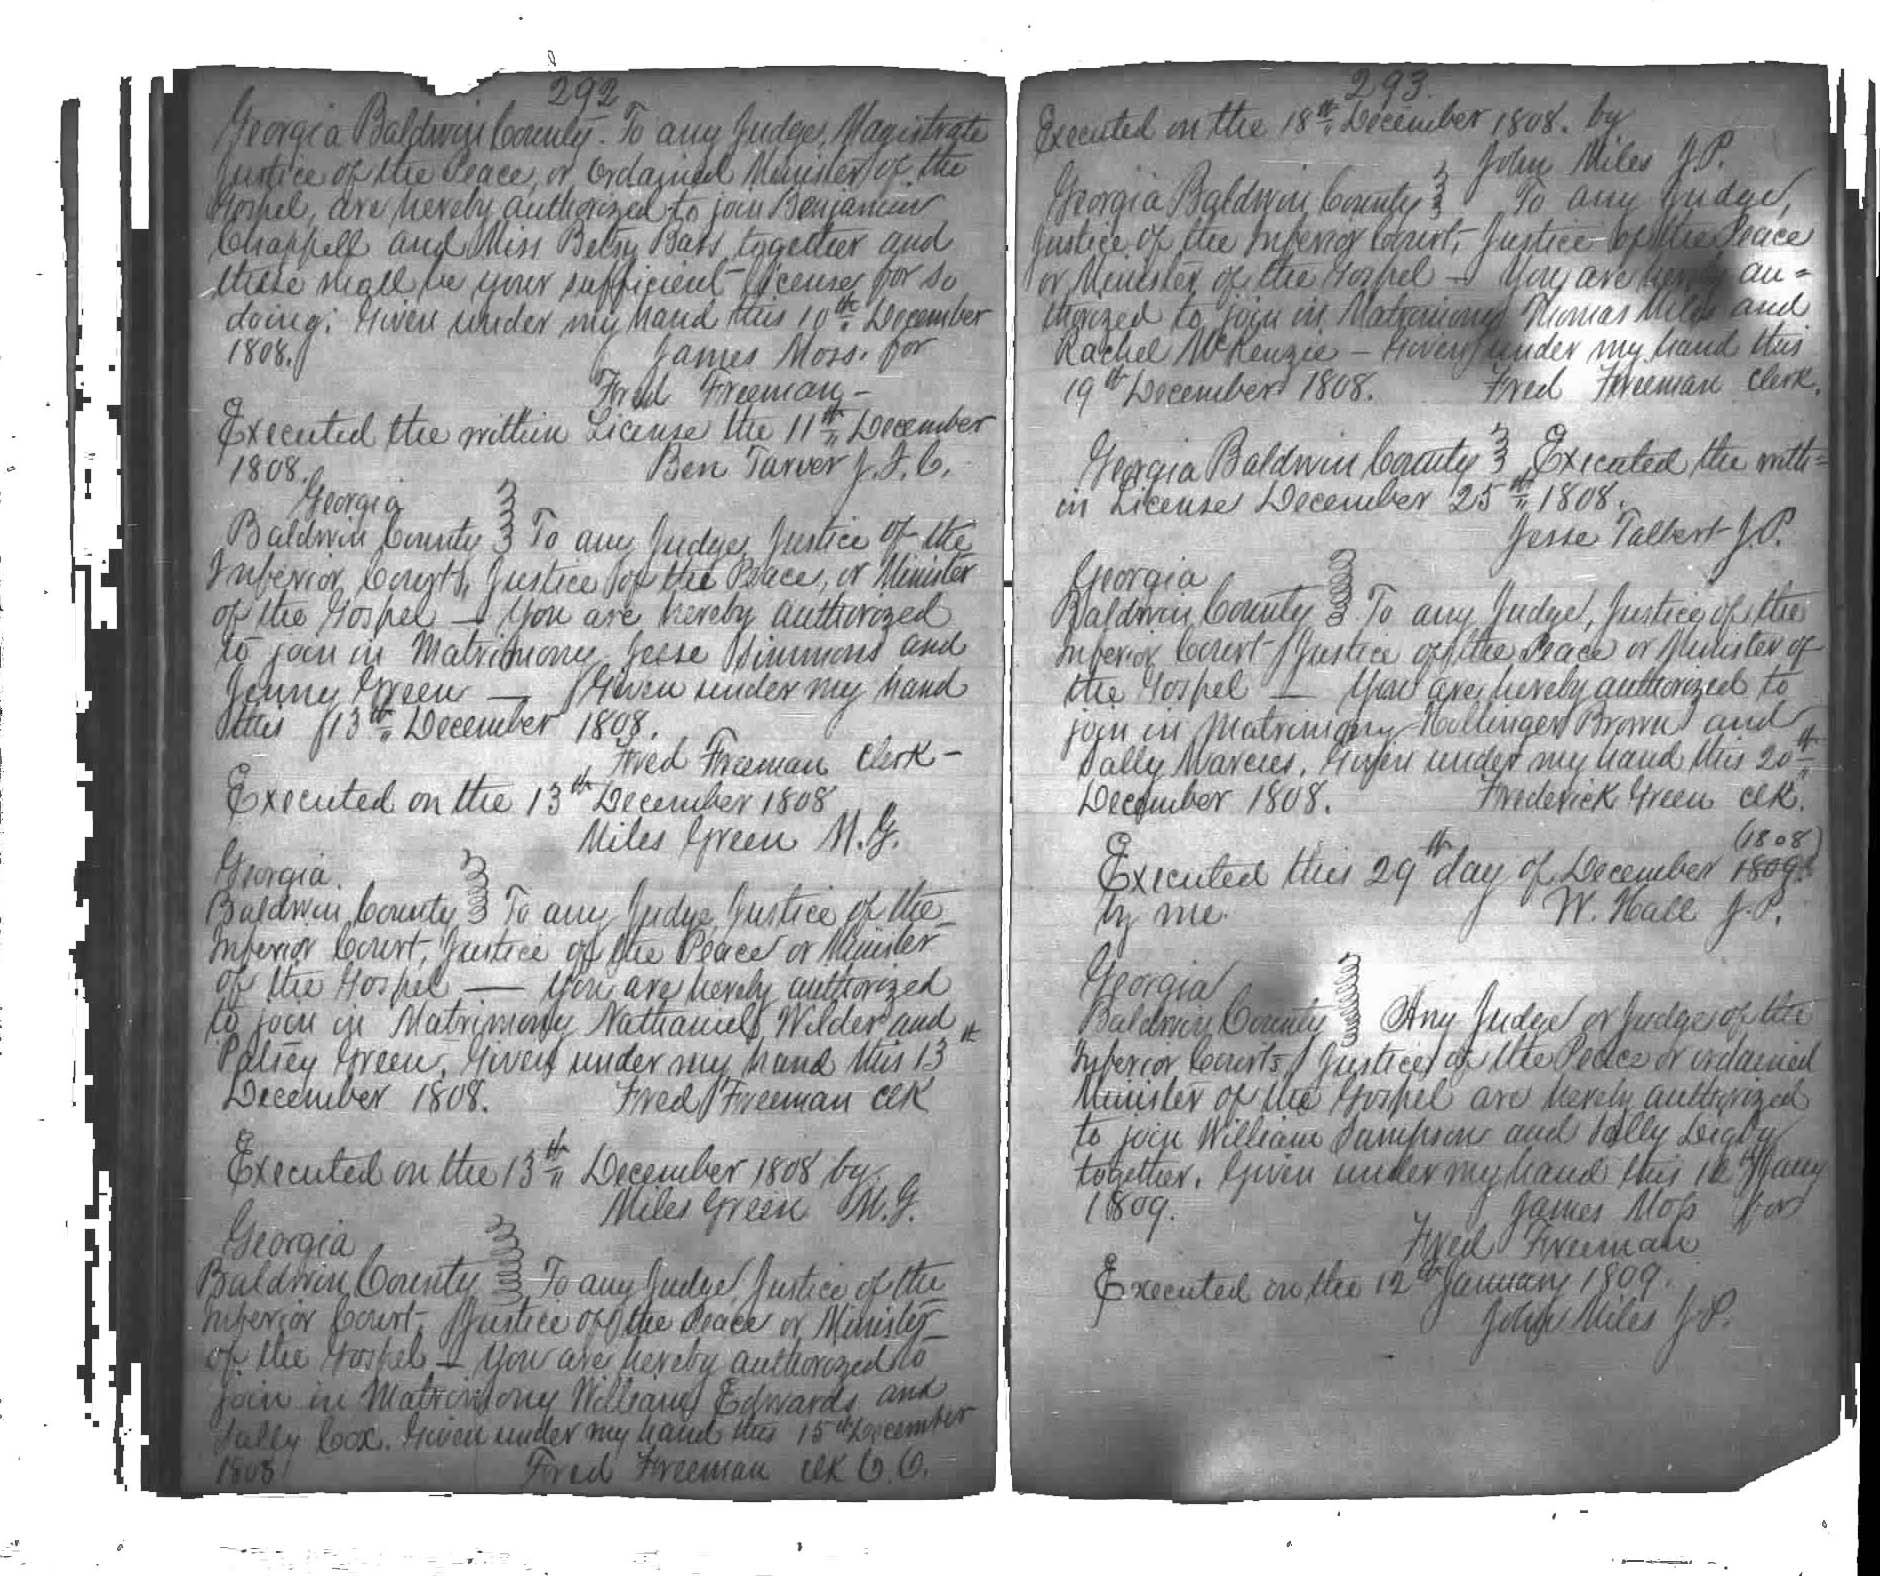 292
Georgia Baldwin County. To any Judge, Magistrate
Justice of the Peace, or Ordained Minister of the
Gospel, are hereby authorized to join Benjamin
Chappell and Miss Betsy Bass together and
these shall be your sufficient License for so
doing. Given under my hand this 10th December
1808. James Moss. for
Fred Freeman -
Executed the within License the 11th December
1808. Ben Tarver J.I.C.
Georgia
Baldwin County To any Judge, Justice of the
Inferior Courts, Justice of the Peace, or Minister
of the Gospel — You are hereby authorized
to join in Matrimony Jesse Simmons and
Jenny Green — Given under my hand
this 13th December 1808.
Fred Freeman Clerk -
Executed on the 13th December 1808
Miles Green M.G.
Georgia.
Baldwin County To any Judge, Justice of the
Inferior Court, Justice of the Peace or Minister
of the Gospel — You are hereby authorized
to join in Matrimony Nathaniel Wilder and
Patsey Green. Given under my hand this 13th
December 1808. Fred Freeman clk
Executed on the 13th December 1808 by
Miles Green M.G.
Georgia
Baldwin County To any Judge, Justice of the
Inferior Court, Justice of the Peace or Minister
of the Gospel — You are hereby authorized to
join in Matrimony William Edwards and
Sally Cox. Given under my hand this 15th December
1808 Fred Freeman clk C.O.
293.
Executed on the 18th December 1808. by
John Miles J.P.
Georgia Baldwin County To any Judge,
Justice of the Inferior Court, Justice of the Peace
or Minister of the Gospel — You are hereby au=
thorized to join in Matrimony Thomas Miles and
Rachel McKenzie — Given under my hand this
19th December 1808. Fred Freeman Clerk.
Georgia Baldwin County Executed the with=
in License December 25th, 1808.
Jesse Talbert J.P.
Georgia
Baldwin County To any Judge, Justice of the
Inferior Court Justice of the Peace or Minister of
the Gospel — You are hereby authorized to
join in Matrimony Hollinger Brown and
Sally Marcus. Given under my hand this 20th
December 1808. Frederick Green clk.
(1808)
Executed this 29th day of December 1809.
by me. W. Hall J.P.
Georgia
Baldwin County Any Judge or Judge of the
Inferior Courts, Justice of the Peace or ordained
Minister of the Gospel are hereby authorized
to join William Sampson and Sally Digby
together. Given under my hand this
1809. James Moss for
Fred Freeman
Executed on the 12th January 1809.
John Miles J.P.